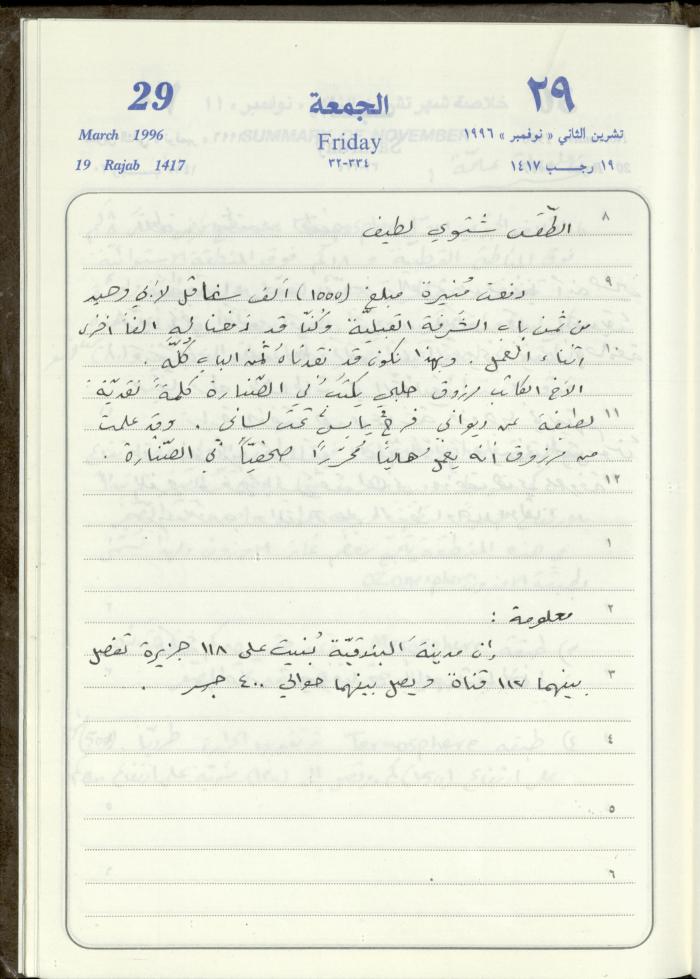 29 الجمعة ٢٩
March 1996 Friday تشرين الثاني « نوفمبر » ١٩٩٦
19 Rajab 1417 ٣٣٤-٣٢ ١٩ رجب ١٤١٧
٨ الطّقس شتوي لطيف
٩
دفعت مُنيرة مبلغ (١٥٥٥) ألف شاقل لأبي وحيد
من ثمن باب الشّرفة القبليّة وكُنّا قد دفعنا له الفاً اخرى
١٠ أثناء العمل . وبهذا نكون قد نقدناهُ ثمن الباب كُلّه .
الأخ الكاتب مرزوق حلبي يكتبُ في الصّنارة كلمةً نقديّة
١١ لطيفة عن ديواني فرحٌ يابسٌ تحت لساني . وقد علمت
من مرزوق أنه يعمل حالياً مُحرّراً صحفيّاً في الصّنارة .
١٢
١
٢ معلومة :
إن مدينة البندقيّة بُنيت على ١١٨ جزيرة تفصل
٣ بينهما ١١٧ قناة ويصل بينهما حوالي ٤٠٠ جسر .
٤
٥
٦